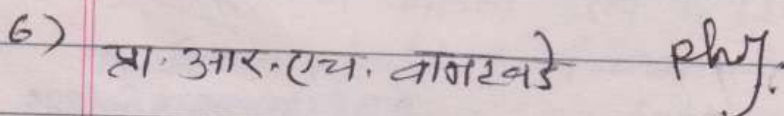 6) प्रा. आर.एच. वानखडे phy.